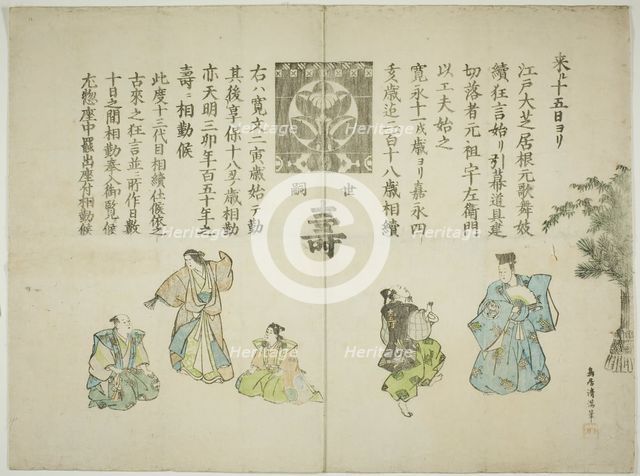 来ル十五日ヨリ
江戸大芝居根元歌舞妓
續狂言始リ引幕道具建
切落者元祖宇左衛門
以工夫始之
寛永十一戌歳ヨリ嘉永四
亥歳迄二百十八歳相續
世嗣
壽
右ハ寛文二寅歳始テ勤
其後享保十八丑歳相勤
亦天明三卯年百五十年之
壽ニ相勤候
此度十三代目相續仕候依之
古來之狂言並ニ所作日數
十日之間相勤奉入御覧候
尤惣座中罷出座付相勤候
鳥居清満筆
Heritage
Heritage
Heritage
Heritage
Heritage
Heritage